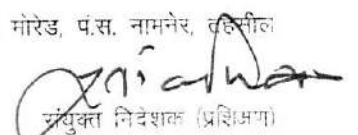 मोरेड, पं.स. नामनेर, तहसील
संयुक्त निदेशक (प्रशिक्षण)